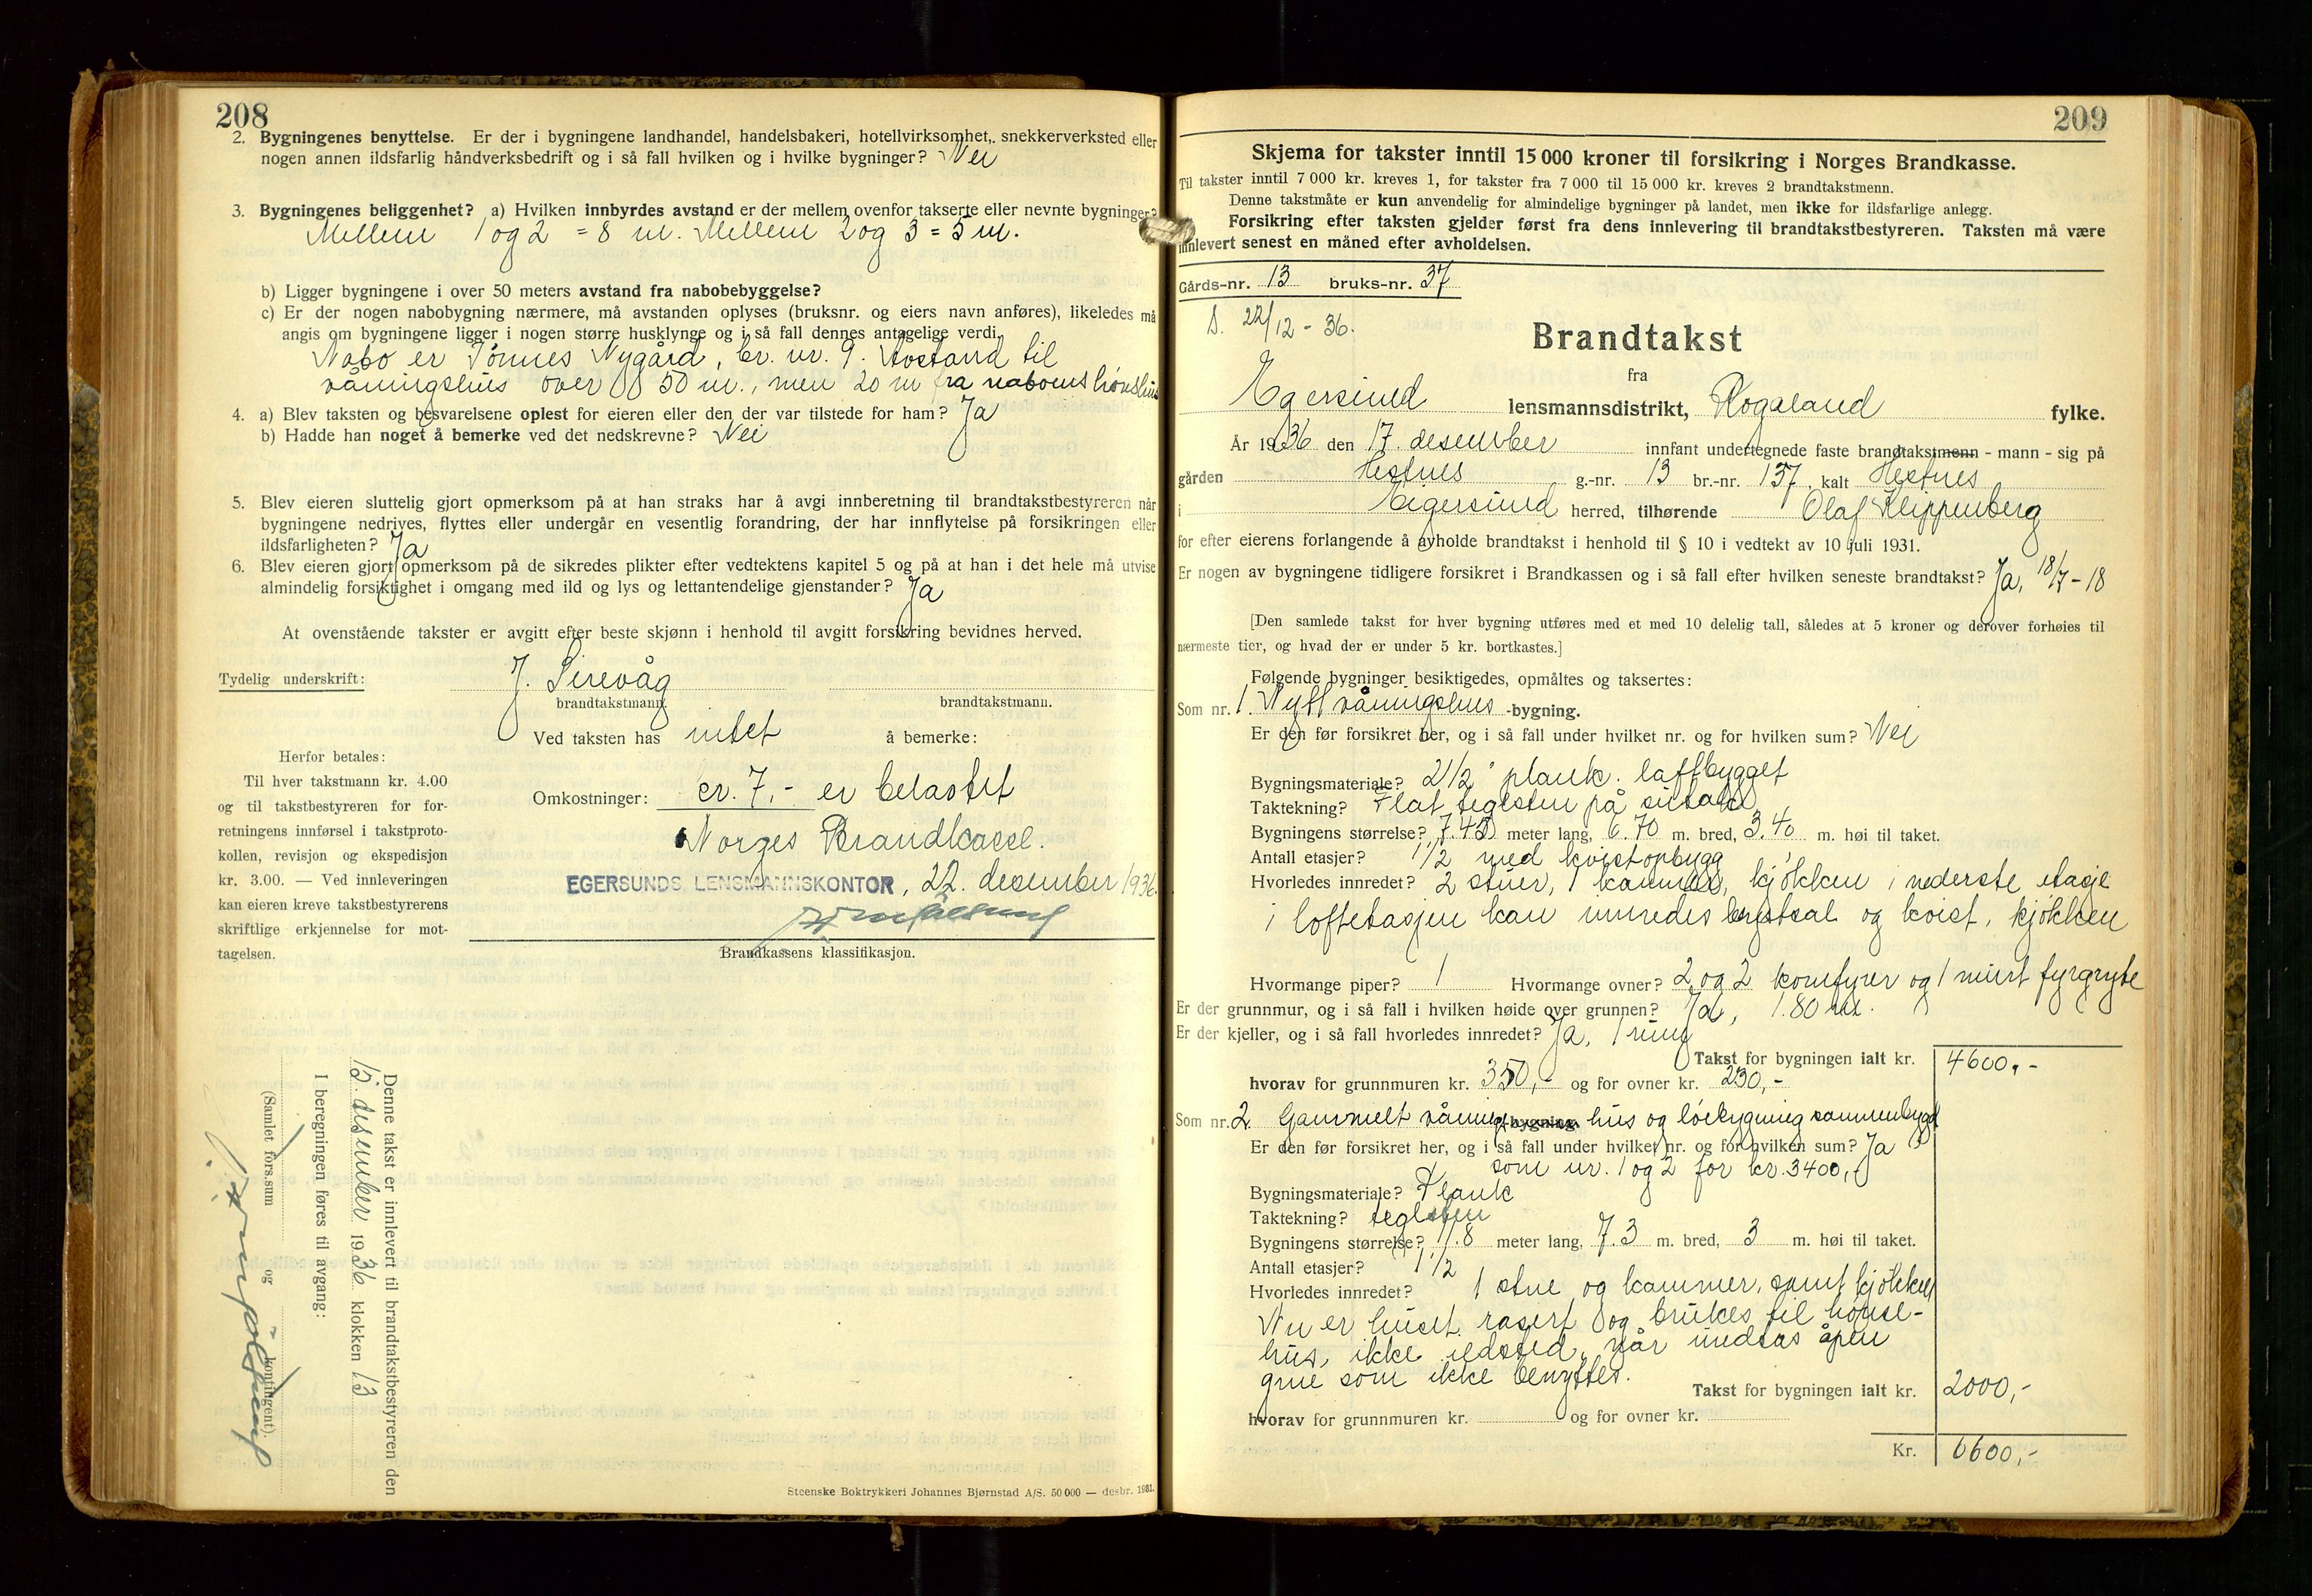 208
2. Bygningenes benyttelse. Er der i bygningene landhandel, handelsbakeri, hotellvirksomhet, snekkerverksted eller
nogen annen ildsfarlig håndverksbedrift og i så fall hvilken og i hvilke bygninger? Nei
3. Bygningenes beliggenhet? a) Hvilken innbyrdes avstand er der mellem ovenfor takserte eller nevnte bygninger?
Mellem 1 og 2 = 8 m. Mellem 2 og 3 = 5 m.
b) Ligger bygningene i over 50 meters avstand fra nabobebyggelse?
c) Er der nogen nabobygning nærmere, må avstanden oplyses (bruksnr. og eiers navn anføres), likeledes må
angis om bygningene ligger i nogen større husklynge og i så fall dennes antagelige verdi.
Nabo er Tønnes Nygård, br. nr. 9. Avstand til
våningshus over 50 m., men 20 m fra naboens hønshus
4. a) Blev taksten og besvarelsene oplest for eieren eller den der var tilstede for ham? Ja
b) Hadde han noget å bemerke ved det nedskrevne? Nei
5. Blev eieren sluttelig gjort opmerksom på at han straks har å avgi innberetning til brandtakstbestyreren når
bygningene nedrives, flyttes eller undergår en vesentlig forandring, der har innflytelse på forsikringen eller
ildsfarligheten? Ja
6. Blev eieren gjort opmerksom på de sikredes plikter efter vedtektens kapitel 5 og på at han i det hele må utvise
almindelig forsiktighet i omgang med ild og lys og lettantendelige gjenstander? Ja
At ovenstående takster er avgitt efter beste skjønn i henhold til avgitt forsikring bevidnes herved.
Tydelig underskrift: J. Sirevåg
brandtakstmann. brandtakstmann.
Ved taksten has intet å bemerke:
Herfor betales:
Til hver takstmann kr. 4.00
og til takstbestyreren for for-
retningens innførsel i takstproto-
kollen, revisjon og ekspedisjon
kr. 3.00. — Ved innleveringen
kan eieren kreve takstbestyrerens
skriftlige erkjennelse for mot-
tagelsen.
Omkostninger: cr. 7,- er belastet
Norges Brandkasse.
EGERSUNDS LENSMANNSKONTOR, 22. desember 1936.
Brandkassens klassifikasjon.
Denne takst er innlevert til brandtakstbestyreren den
15. desember 1936 klokken 13
I beregningen føres til avgang:
(Samlet fors.sum og kontingent).
Steenske Boktrykkeri Johannes Bjørnstad A/S. 50 000 — desbr. 1931.
209
Skjema for takster inntil 15 000 kroner til forsikring i Norges Brandkasse.
Til takster inntil 7 000 kr. kreves 1, for takster fra 7 000 til 15 000 kr. kreves 2 brandtakstmenn.
Denne takstmåte er kun anvendelig for almindelige bygninger på landet, men ikke for ildsfarlige anlegg.
Forsikring efter taksten gjelder først fra dens innlevering til brandtakstbestyreren. Taksten må være
innlevert senest en måned efter avholdelsen.
Gårds-nr. 13 bruks-nr. 37
D. 22/12 - 36.
Brandtakst
fra
Egersund lensmannsdistrikt, Rogaland fylke.
År 1936 den 17. desember innfant undertegnede faste brandtakstmenn - mann - sig på
gården Hestnes g.-nr. 13 br.-nr. 137, kalt Hestnes
i Eigersund herred, tilhørende Olaf Klippenberg
for efter eierens forlangende å avholde brandtakst i henhold til § 10 i vedtekt av 10 juli 1931.
Er nogen av bygningene tidligere forsikret i Brandkassen og i så fall efter hvilken seneste brandtakst? Ja, 18/7 - 18
[Den samlede takst for hver bygning utføres med et med 10 delelig tall, således at 5 kroner og derover forhøies til
nærmeste tier, og hvad der er under 5 kr. bortkastes.]
Følgende bygninger besiktigedes, opmåltes og taksertes:
Som nr. 1. Nytt våningshus -bygning.
Er den før forsikret her, og i så fall under hvilket nr. og for hvilken sum? Nei
Bygningsmateriale? 2 1/2" plank. laftbygget
Taktekning? Flat teglsten på sutak
Bygningens størrelse? 7.45 meter lang, 6.70 m. bred, 3.40 m. høi til taket.
Antall etasjer? 1 1/2 med kvistopbygg
Hvorledes innredet? 2 stuer, 1 kammer, kjøkken i nederste etasje
i loftetasjen kan innredes brystsal og kvist, kjøkken
Hvormange piper? 1 Hvormange ovner? 2 og 2 komfyrer og 1 murt fyrgryte
Er der grunnmur, og i så fall i hvilken høide over grunnen? Ja, 1.80 m.
Er der kjeller, og i så fall hvorledes innredet? Ja, 1 rum
Takst for bygningen ialt kr. 4600,-
hvorav for grunnmuren kr. 350,- og for ovner kr. 230,-
Som nr. 2. Gammelt våning-bygning hus og løebygning sammenbygd
Er den før forsikret her, og i så fall under hvilket nr. og for hvilken sum? Ja
som nr. 1 og 2 for kr. 3400,-
Bygningsmateriale? Plank
Taktekning? teglsten
Bygningens størrelse? 11.8 meter lang, 7.3 m. bred, 3 m. høi til taket.
Antall etasjer? 1 1/2
Hvorledes innredet? 1 stue og kammer, samt kjøkken
Nu er huset rasert og brukes til hønse-
hus, ikke ildsted, når undtas åpen
grue som ikke benyttes.
Takst for bygningen ialt kr. 2000,-
hvorav for grunnmuren kr. og for ovner kr.
Kr. 6600,-